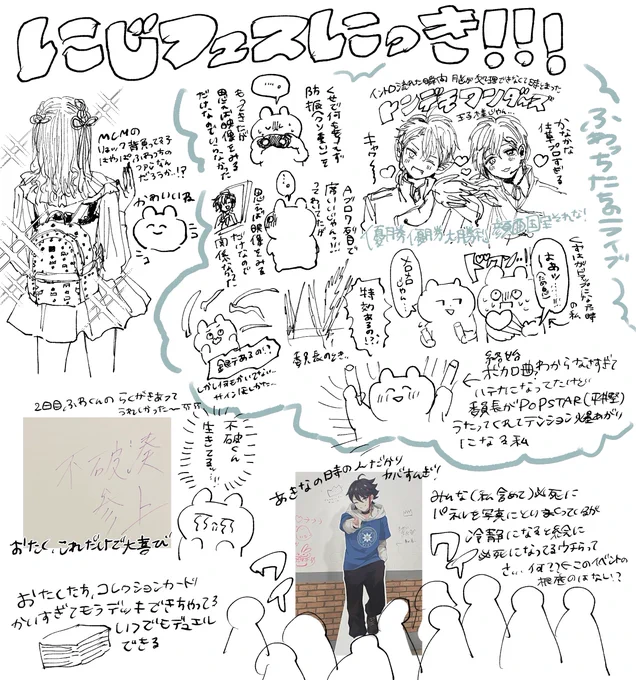 にじフェスにっき!!!
MCMの
リュック背負ってる子
はやっぱふわっちの
ファンなん
だろうか…!?
かわいいね
くせで何も考えず
防振(ソンまい)を
もってきたが
思えば映像をみる
だけなのでいらなかった
Aブロック2列目で
席いいじゃん!!!
ってわいてたが
思えば映像をみる
だけなので
関係なかった
イントロ流れた瞬間
トンデモワンダーズ
王子さますじゃん…
かなかな
仕事プロすぎる
キャウ〜
ふわっちたちのライブ
優勝 優勝 大勝利 顔画国宝それな!
ドッカン
はぁッ…!!
の私
メロメロ
じゃん…
特効あるの!?
委員長のとき…
銀テあるの!?
しかし何もかいてない…
サインほしかた…
終始
ボカロ曲わからなさすぎて
ハテナになってたけど
委員長がPOPSTAR(平井堅)
うたってくれてテンション爆あがり
になる私
2日目、ふわくんの らくがきあって
うれしかった〜
不破湊
参上
おたく、これだけで大喜び
不破くん
生きてるッ…!!
おたくたち、コレクションカード
かいすぎてもうデッキできちゃってる
いつでもデュエル
できる
あきなの日時の人だかり
ヤバすんぎ!
みんな(私含めて)必死に
パネルを写真にとりまくっているが
冷静になると絵に
必死になってるウチらって
さい、何??←このイベントの
根底のはない?
ワイ
ワイ